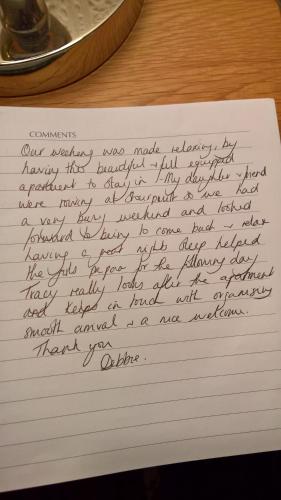 COMMENTS
Our weekend was made relaxing, by
having this beautiful + full equipped
apartment to stay in! My daughter + friend
were rowing at so we had
a very busy weekend and looked
forward to being to come back + relax
having a nights sleep helped
the girls prepare for the following day
Tracy really looks after the apartment
and keeps in touch with organising
smooth arrival + a nice welcome.
Thank you
Debbie.